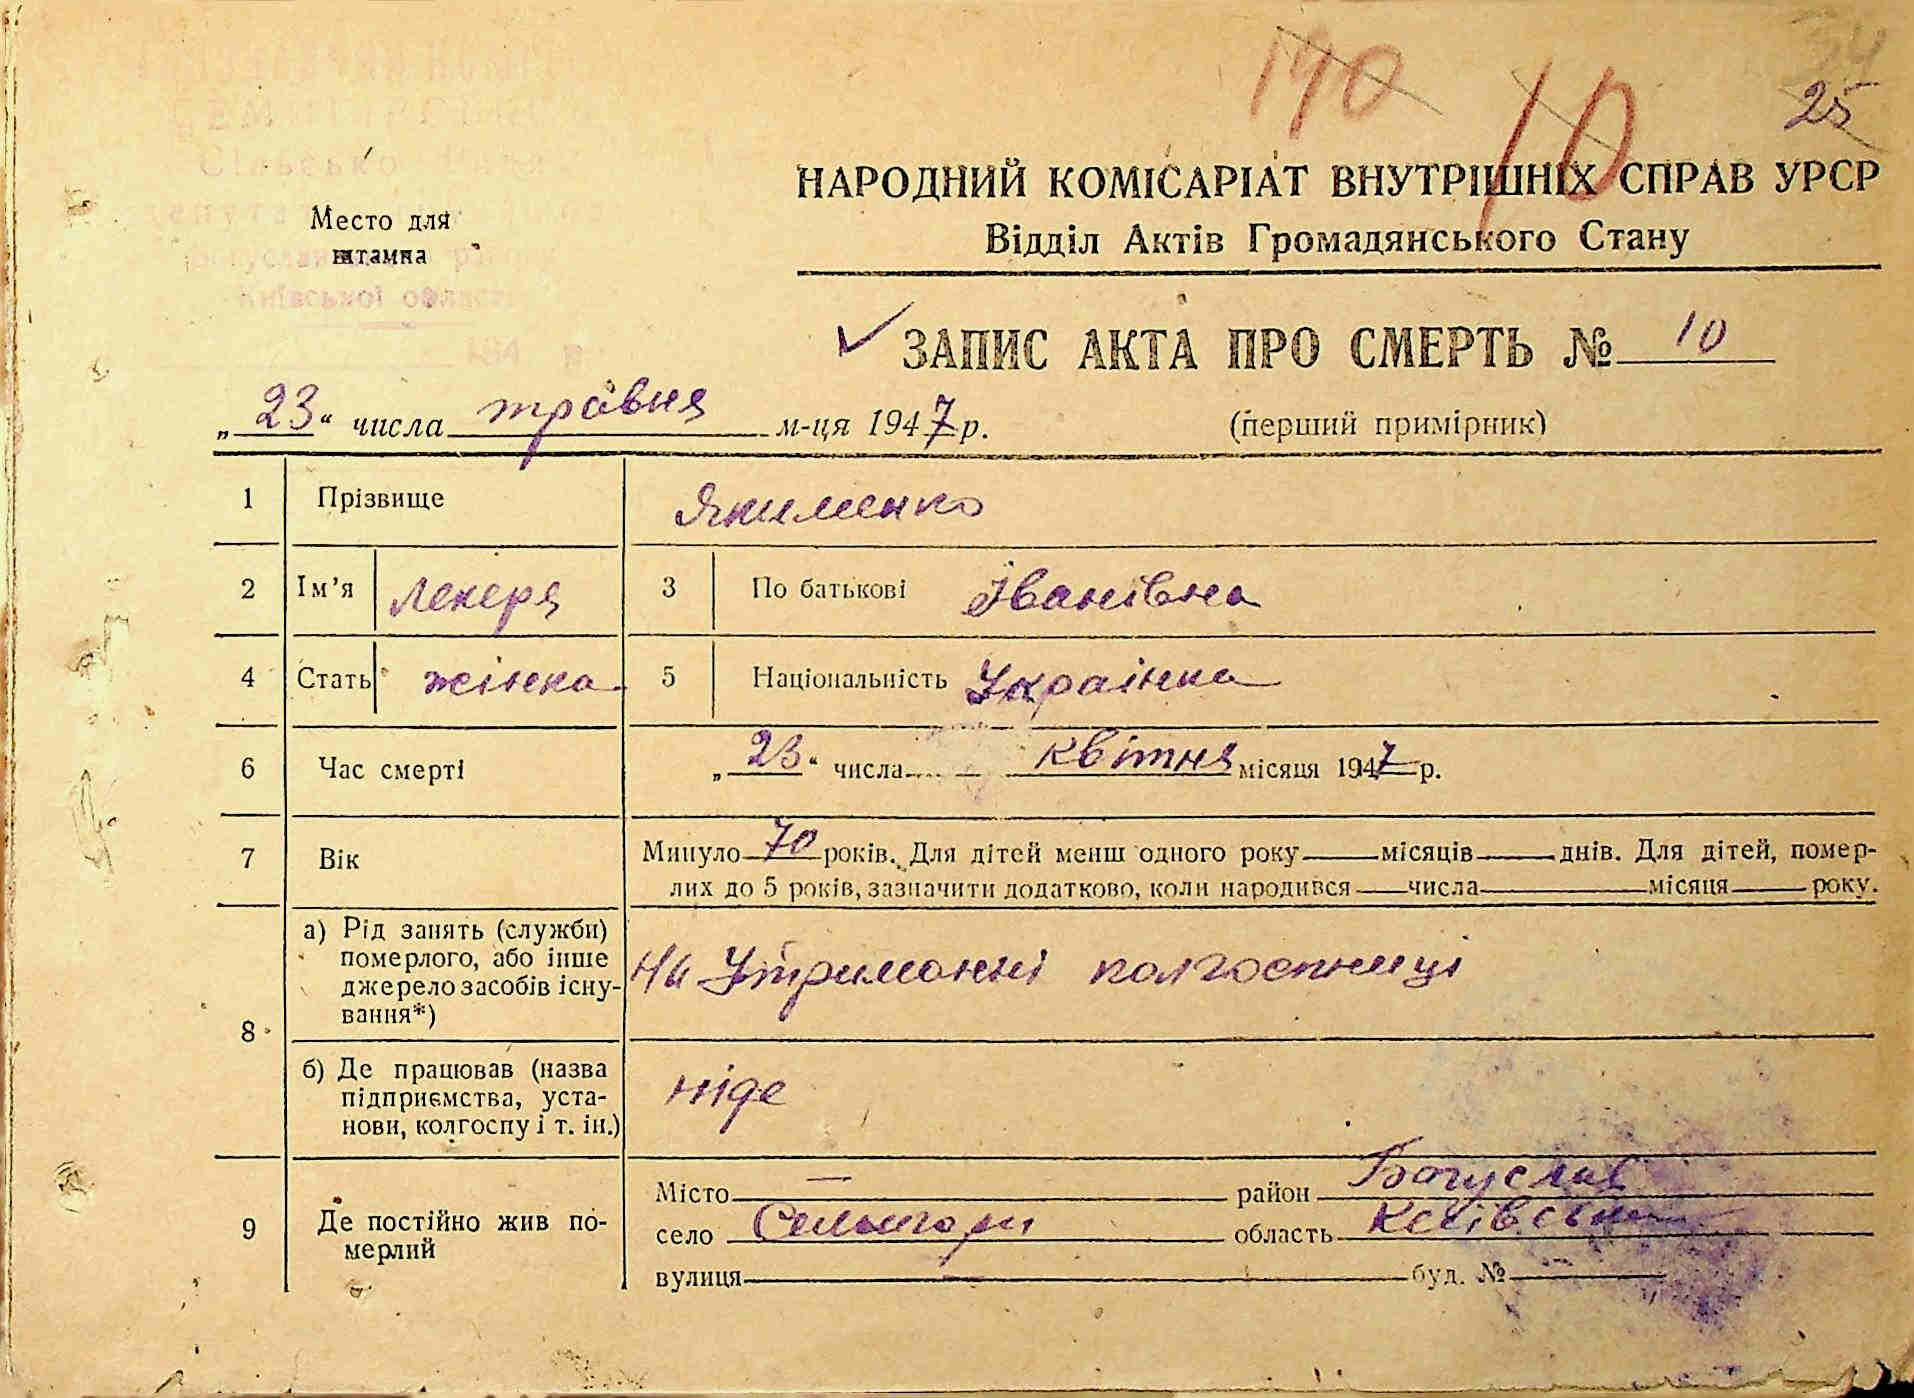 190
10
34
25
НАРОДНИЙ КОМІСАРІАТ ВНУТРІШНІХ СПРАВ УРСР
Відділ Актів Громадянського Стану
Место для
штампа
Київської області
ЗАПИС АКТА ПРО СМЕРТЬ № 10
„23“ числа травня м-ця 1947 р.
(перший примірник)
1 Прізвище Якименко
2 Ім'я Лекеря 3 По батькові Іванівна
4 Стать жінка 5 Національність Українка
6 Час смерті „23“ числа квітня місяця 1947 р.
7 Вік Минуло 70 років. Для дітей менш одного року місяців днів. Для дітей, помер-
лих до 5 років, зазначити додатково, коли народився числа місяця року.
8 а) Рід занять (служби)
померлого, або інше
джерело засобів існу-
вання*)
На Утриманні колгоспниці
б) Де працював (назва
підприємства, уста-
нови, колгоспу і т. ін.)
ніде
9 Де постійно жив по-
мерлий
Місто — район Богуслав
село область Київська
вулиця буд. №